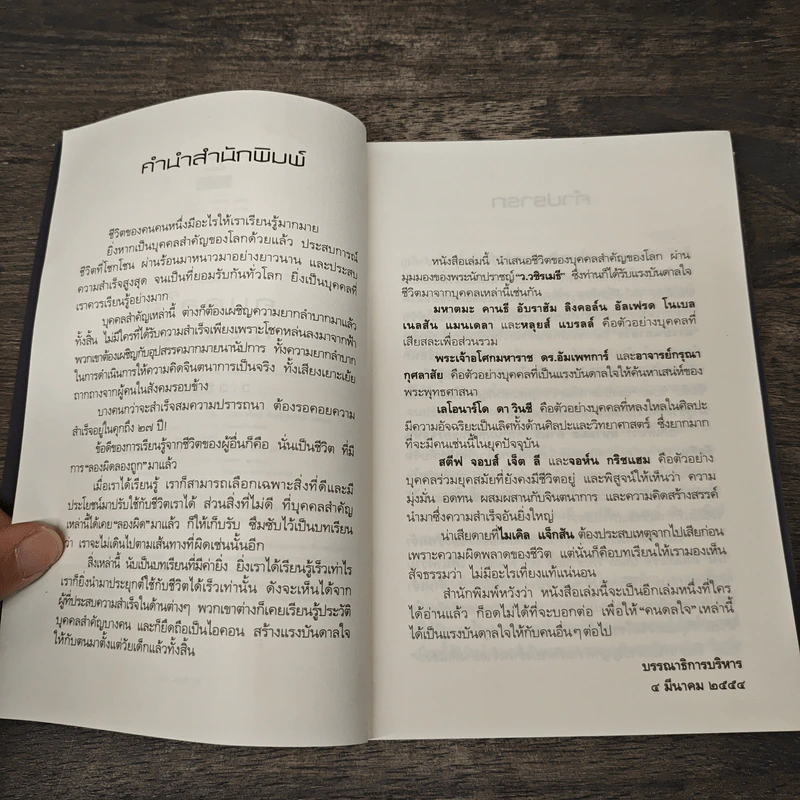 คำนำสำนักพิมพ์
ชีวิตของคนคนหนึ่งมีอะไรให้เราเรียนรู้มากมาย
ยิ่งหากเป็นบุคคลสำคัญของโลกด้วยแล้ว ประสบการณ์
ชีวิตที่โชกโชน ผ่านร้อนมาหนาวมาอย่างยาวนาน และประสบ
ความสำเร็จสูงสุด จนเป็นที่ยอมรับกันทั่วโลก ยิ่งเป็นบุคคลที่
เราควรเรียนรู้อย่างมาก
บุคคลสำคัญเหล่านี้ ต่างก็ต้องเผชิญความยากลำบากมาแล้ว
ทั้งสิ้น ไม่มีใครที่ได้รับความสำเร็จเพียงเพราะโชคหล่นลงมาจากฟ้า
พวกเขาต้องเผชิญกับอุปสรรคมากมายนานัปการ ทั้งความยากลำบาก
ในการดำเนินการให้ความคิดจินตนาการเป็นจริง ทั้งเสียงเยาะเย้ย
ถากถางจากผู้คนในสังคมรอบข้าง
บางคนกว่าจะสำเร็จสมความปรารถนา ต้องรอคอยความ
สำเร็จอยู่ในคุกถึง ๒๗ ปี!
ข้อดีของการเรียนรู้จากชีวิตของผู้อื่นก็คือ นั่นเป็นชีวิต ที่มี
การ “ลองผิดลองถูก” มาแล้ว
เมื่อเราได้เรียนรู้ เราก็สามารถเลือกเฉพาะสิ่งที่ดีและมี
ประโยชน์มาปรับใช้กับชีวิตเราได้ ส่วนสิ่งที่ไม่ดี ที่บุคคลสำคัญ
เหล่านี้ได้เคย “ลองผิด” มาแล้ว ก็ให้เก็บรับ ซึมซับไว้เป็นบทเรียน
ว่า เราจะไม่เดินไปตามเส้นทางที่ผิดเช่นนั้นอีก
สิ่งเหล่านี้ นับเป็นบทเรียนที่มีค่ายิ่ง ยิ่งเราได้เรียนรู้เร็วเท่าไร
เราก็ยิ่งนำมาประยุกต์ใช้กับชีวิตได้เร็วเท่านั้น ดังจะเห็นได้จาก
ผู้ที่ประสบความสำเร็จในด้านต่างๆ พวกเขาต่างก็เคยเรียนรู้ประวัติ
บุคคลสำคัญบางคน และก็ยึดถือเป็นไอคอน สร้างแรงบันดาลใจ
ให้กับตนมาตั้งแต่วัยเด็กแล้วทั้งสิ้น
หนังสือเล่มนี้ นำเสนอชีวิตของบุคคลสำคัญของโลก ผ่าน
มุมมองของพระนักปราชญ์ “ว.วชิรเมธี” ซึ่งท่านก็ได้รับแรงบันดาลใจ
ชีวิตมาจากบุคคลเหล่านี้เช่นกัน
มหาตมะ คานธี อับราฮัม ลิงคอล์น อัลเฟรด โนเบล
เนลสัน แมนเดลา และหลุยส์ แบรลล์ คือตัวอย่างบุคคลที่
เสียสละเพื่อส่วนรวม
พระเจ้าอโศกมหาราช ดร.อัมเพทการ์ และอาจารย์กรุณา
กุศลาสัย คือตัวอย่างบุคคลที่เป็นแรงบันดาลใจให้ค้นหาเสน่ห์ของ
พระพุทธศาสนา
เลโอนาร์โด ดา วินชี คือตัวอย่างบุคคลที่หลงใหลในศิลปะ
มีความอัจฉริยะเป็นเลิศทั้งด้านศิลปะและวิทยาศาสตร์ ซึ่งยากมาก
ที่จะมีคนเช่นนี้ในยุคปัจจุบัน
สตีฟ จอบส์ เจ็ต ลี และจอห์น กริชแฮม คือตัวอย่าง
บุคคลร่วมยุคสมัยที่ยังคงมีชีวิตอยู่ และพิสูจน์ให้เห็นว่า ความ
มุ่งมั่น อดทน ผสมผสานกับจินตนาการ และความคิดสร้างสรรค์
นำมาซึ่งความสำเร็จอันยิ่งใหญ่
น่าเสียดายที่ไมเคิล แจ็กสัน ต้องประสบเหตุจากไปเสียก่อน
เพราะความผิดพลาดของชีวิต แต่นั่นก็คือบทเรียนให้เรามองเห็น
สัจธรรมว่า ไม่มีอะไรเที่ยงแท้แน่นอน
สำนักพิมพ์หวังว่า หนังสือเล่มนี้จะเป็นอีกเล่มหนึ่งที่ใคร
ได้อ่านแล้ว ก็อดไม่ได้ที่จะบอกต่อ เพื่อให้ “คนดลใจ” เหล่านี้
ได้เป็นแรงบันดาลใจให้กับคนอื่นๆ ต่อไป
บรรณาธิการบริหาร
๔ มีนาคม ๒๕๕๔